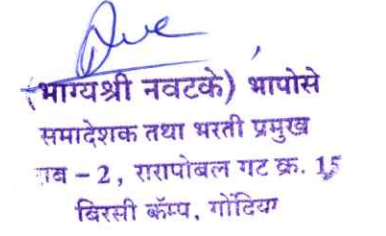 (भाग्यश्री नवटके) भापोसे
समादेशक तथा भरती प्रमुख
ाब – 2, रारापोबल गट क्र. 15
बिरसी कॅम्प, गोंदिया